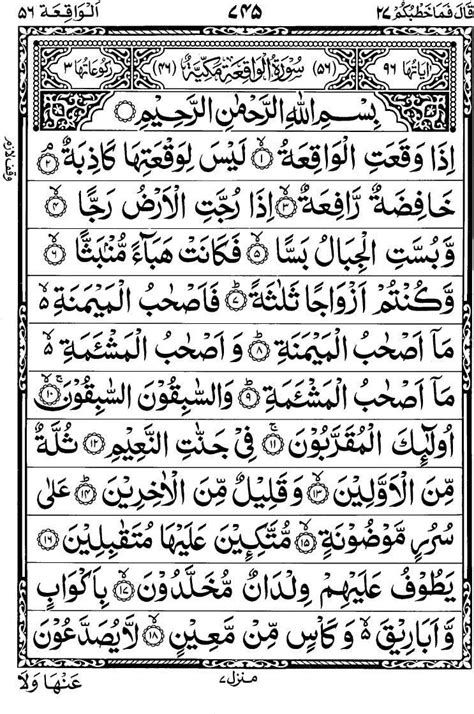 قَالَ فَمَا خَطْبُكُمْ ٢٧ ٧٤٥ اَلْوَاقِعَة ٥٦
اٰيَاتُهَا ٩٦ (٥٦) سُوْرَةُ الْوَاقِعَةِ مَكِّيَّةٌ (٤٦) رُكُوْعَاتُهَا ٣
بِسْمِ اللّٰهِ الرَّحْمٰنِ الرَّحِيْمِ
اِذَا وَقَعَتِ الْوَاقِعَةُ ١ لَيْسَ لِوَقْعَتِهَا كَاذِبَةٌ ٢
وقف لازم
خَافِضَةٌ رَّافِعَةٌ ٣ اِذَا رُجَّتِ الْاَرْضُ رَجًّا ٤
وَّبُسَّتِ الْجِبَالُ بَسًّا ٥ فَكَانَتْ هَبَآءً مُّنْۢبَثًّا ٦
وَّكُنْتُمْ اَزْوَاجًا ثَلٰثَةً ٧ فَاَصْحٰبُ الْمَيْمَنَةِ ۵
مَاۤ اَصْحٰبُ الْمَيْمَنَةِ ٨ وَ اَصْحٰبُ الْمَشْـَٔمَةِ ۵
مَاۤ اَصْحٰبُ الْمَشْـَٔمَةِ ٩ وَالسّٰبِقُوْنَ السّٰبِقُوْنَ ١٠
اُولٰٓئِكَ الْمُقَرَّبُوْنَ ١١ فِيْ جَنّٰتِ النَّعِيْمِ ١٢ ثُلَّةٌ
مِّنَ الْاَوَّلِيْنَ ١٣ وَ قَلِيْلٌ مِّنَ الْاٰخِرِيْنَ ١٤ عَلٰى
سُرُرٍ مَّوْضُوْنَةٍ ١٥ مُّتَّكِـِٕيْنَ عَلَيْهَا مُتَقٰبِلِيْنَ ١٦
يَطُوْفُ عَلَيْهِمْ وِلْدَانٌ مُّخَلَّدُوْنَ ١٧ بِاَكْوَابٍ
وَّ اَبَارِيْقَ ۵ وَ كَاْسٍ مِّنْ مَّعِيْنٍ ١٨ لَّا يُصَدَّعُوْنَ
منزل ٧
عَنْهَا وَلَا